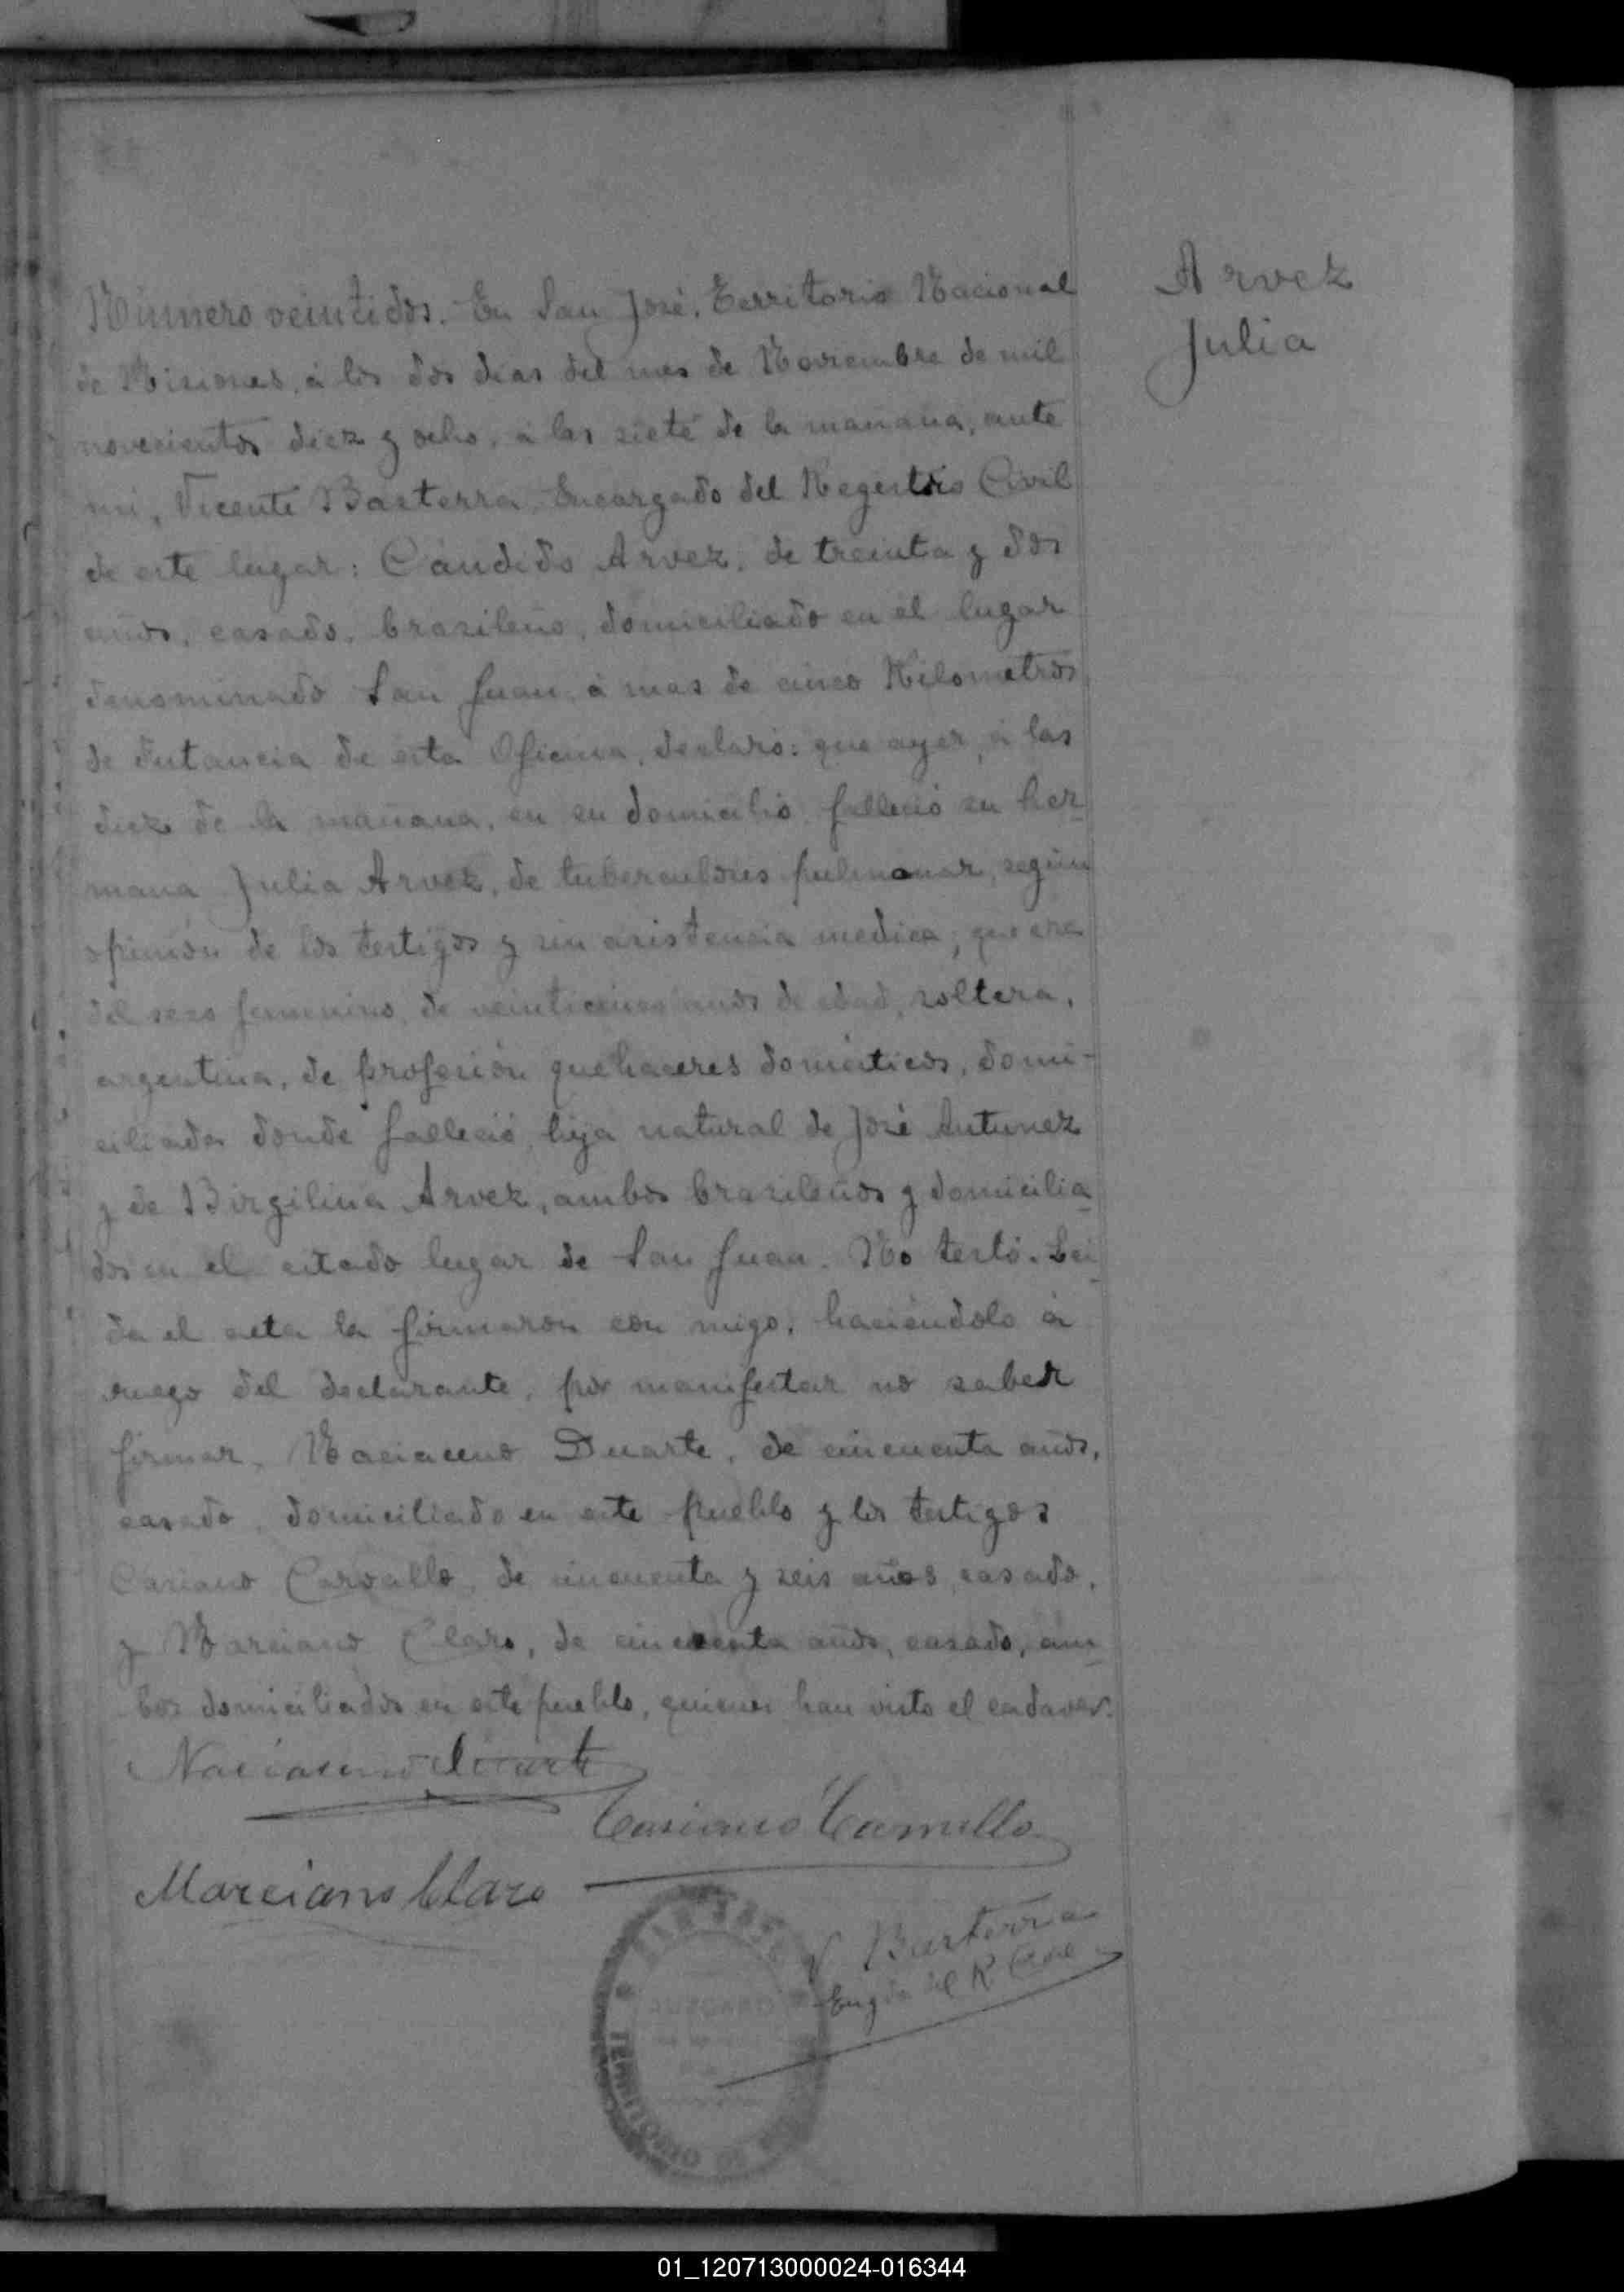 Número veintidos. En San José, Territorio Nacional
de Misiones, á los dos dias del mes de Noviembre de mil
novecientos diez y ocho, á las siete de la mañana, ante
mi, Vicente Basterra, Encargado del Registro Civil
de este lugar: Cándido Arvez, de treinta y dos
años, casado, brasileño, domiciliado en el lugar
denominado San Juan, á mas de cinco Kilometros
de distancia de esta Oficina, declaró: que ayer, á las
diez de la mañana, en su domicilio, falleció su her-
mana Julia Arvez, de tuberculosis pulmonar, según
opinión de los testigos y sin asistencia medica; que era
del sexo femenino, de veinticinco años de edad, soltera,
argentina, de profesión quehaceres domésticos, domi-
ciliada donde falleció, hija natural de José Antunez
y de Birgilina Arvez, ambos brasileños y domicilia-
dos en el citado lugar de San Juan. No testó. Lei-
da el acta la firmaron con migo, haciéndolo á
ruego del declarante, por manifestar no saber
firmar, Naciaceno Duarte, de cincuenta años,
casado, domiciliado en este pueblo y los testigos
Casiano Carvallo, de cincuenta y seis años, casado,
y Marciano Claro, de cincuenta años, casado, am-
bos domiciliados en este pueblo, quienes han visto el cadaver.
Naciaceno Duarte
Casiano Carvallo
Marciano Claro
V. Basterra
Engdo del R. Civil
SAN JOSE
JUZGADO
TERRITORIO DE
Arvez
Julia
01_120713000024-016344